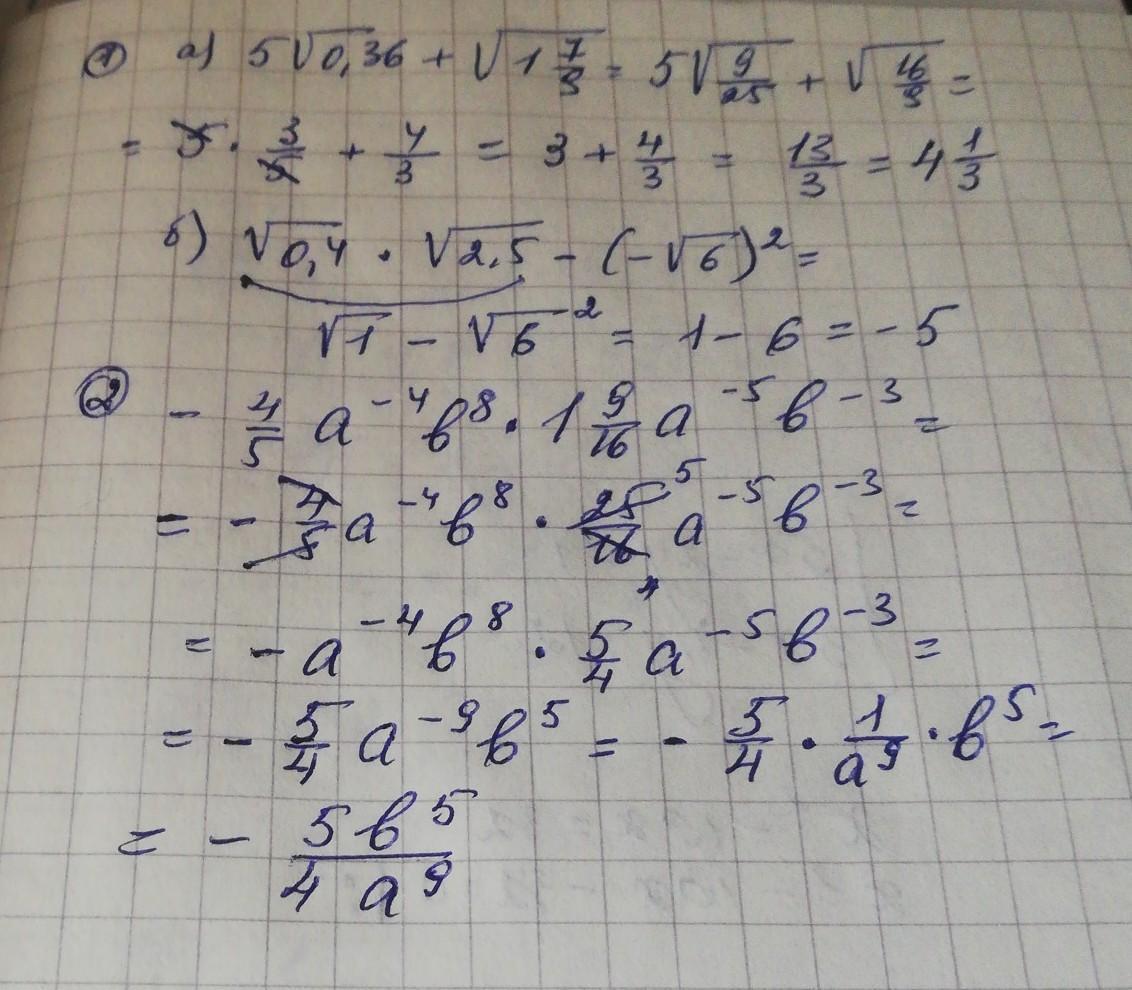 ① а) 5√0,36 + √1 7/9 = 5√9/25 + √16/9 =
= 5 · 3/5 + 4/3 = 3 + 4/3 = 13/3 = 4 1/3
б) √0,4 · √2,5 - (-√6)² =
√1 - √6² = 1 - 6 = -5
② - 4/5 a⁻⁴b⁸ · 1 9/16 a⁻⁵b⁻³ =
= - 4/5 a⁻⁴b⁸ · 25/16 ⁵/₄ a⁻⁵b⁻³ =
= - a⁻⁴b⁸ · 5/4 a⁻⁵b⁻³ =
= - 5/4 a⁻⁹b⁵ = - 5/4 · 1/a⁹ · b⁵ =
= - 5b⁵/4a⁹